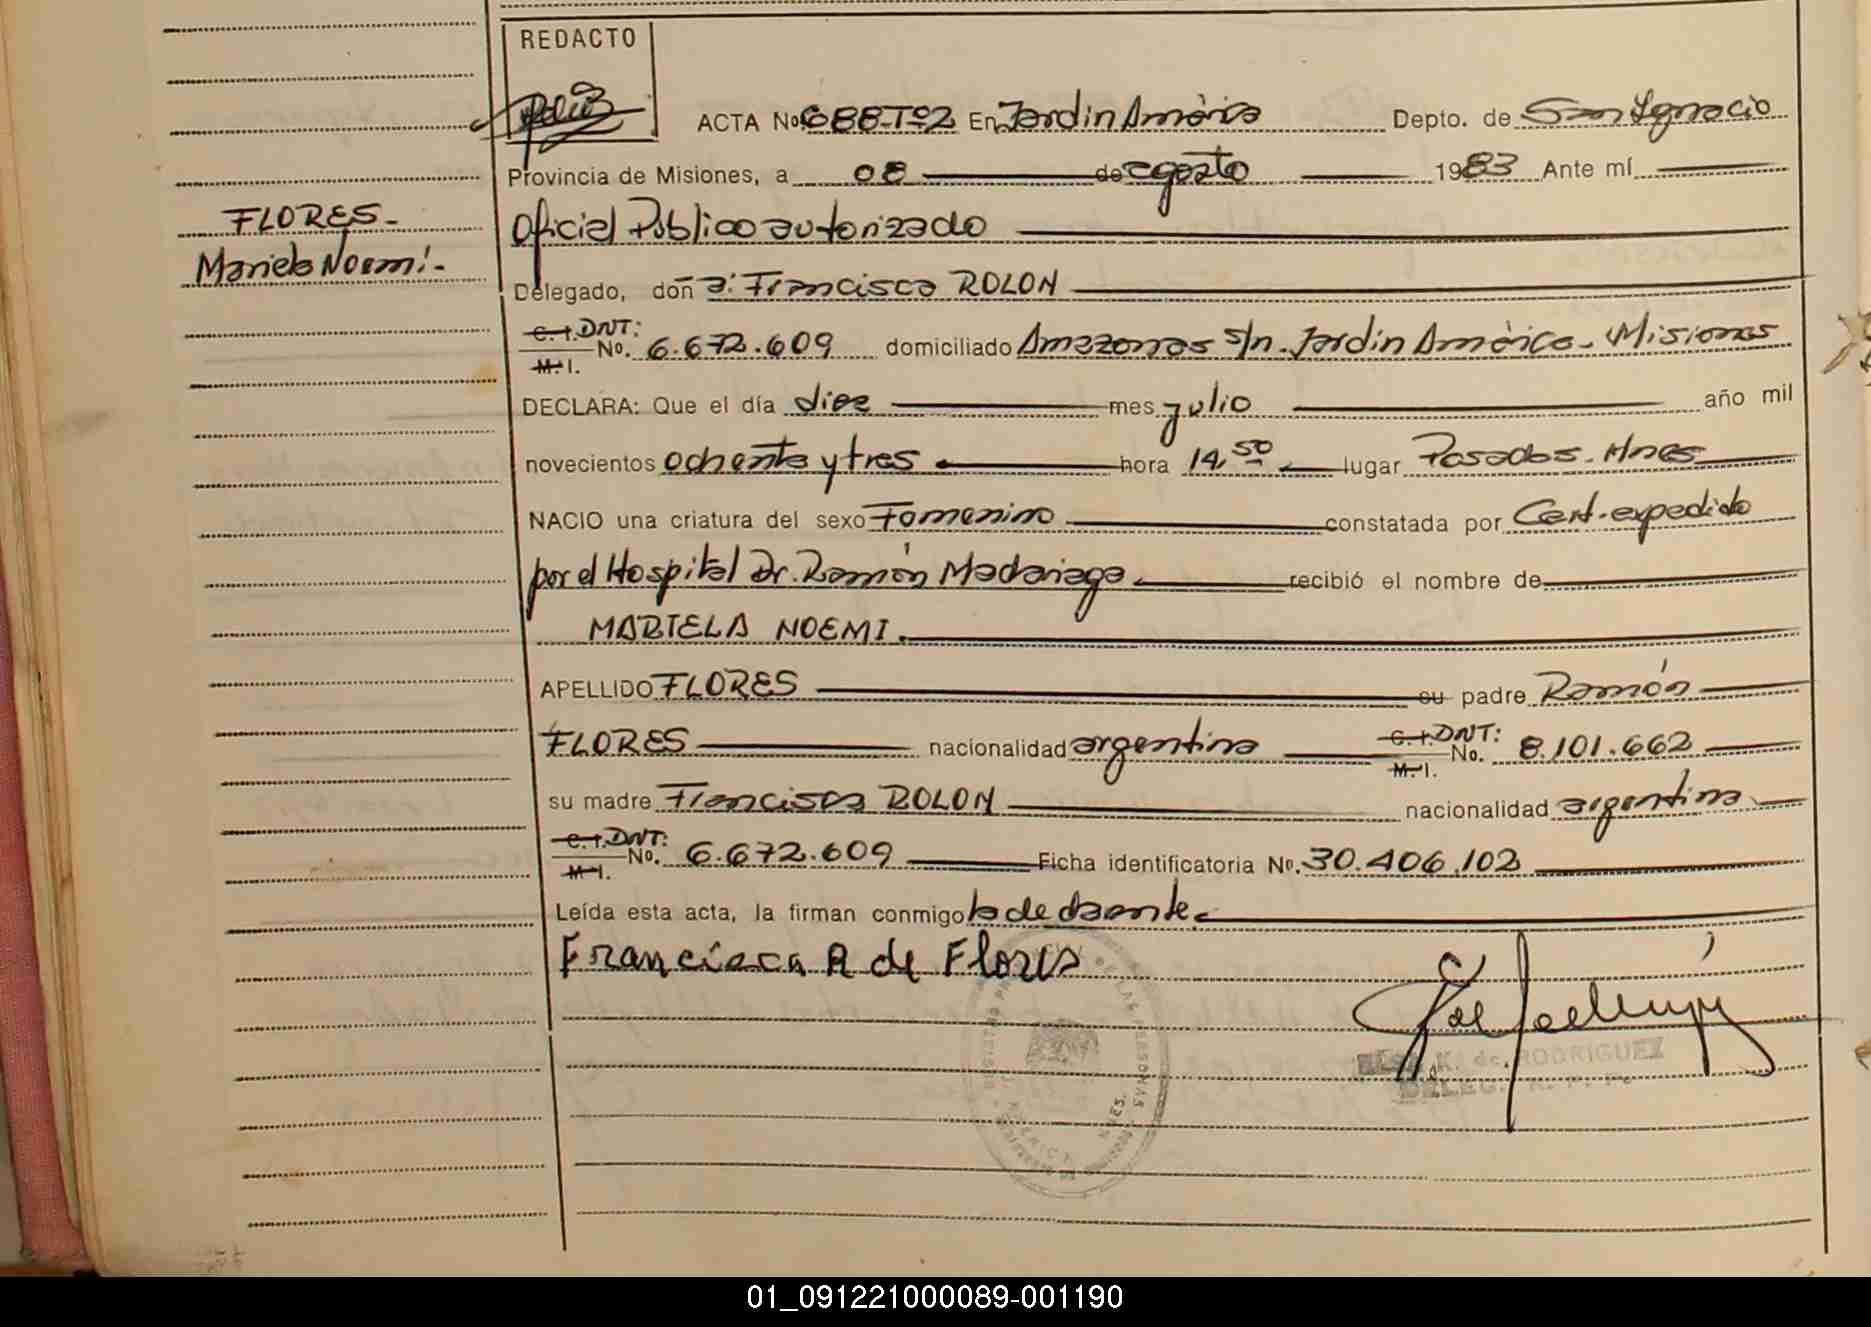 REDACTO
ACTA No. 688-Tº2 En Jardin América Depto. de San Ignacio
Provincia de Misiones, a 08 de agosto 1983 Ante mí
FLORES-
Mariela Noemi-
Oficial Público autorizado
Delegado, don a: Francisca ROLON
C. I. DNI:
No. 6.672.609 domiciliado Amazonas s/n. Jardin América - Misiones
M. I.
DECLARA: Que el día diez mes julio año mil
novecientos ochenta y tres hora 14,50 lugar Posadas. Mnes
NACIO una criatura del sexo Femenino constatada por Cert. expedido
por el Hospital Dr. Ramón Madariaga recibió el nombre de
MARIELA NOEMI.
APELLIDO FLORES su padre Ramón
FLORES nacionalidad argentina C. I. DNI: No. 8.101.662
M. I.
su madre Francisca ROLON nacionalidad argentina
C. I. DNI:
No. 6.672.609 Ficha identificatoria No. 30.406.102
M. I.
Leída esta acta, la firman conmigo la declarante.
Francisca R de Flores
K. de RODRIGUEZ
DELEG. R. P. P.
01_091221000089-001190